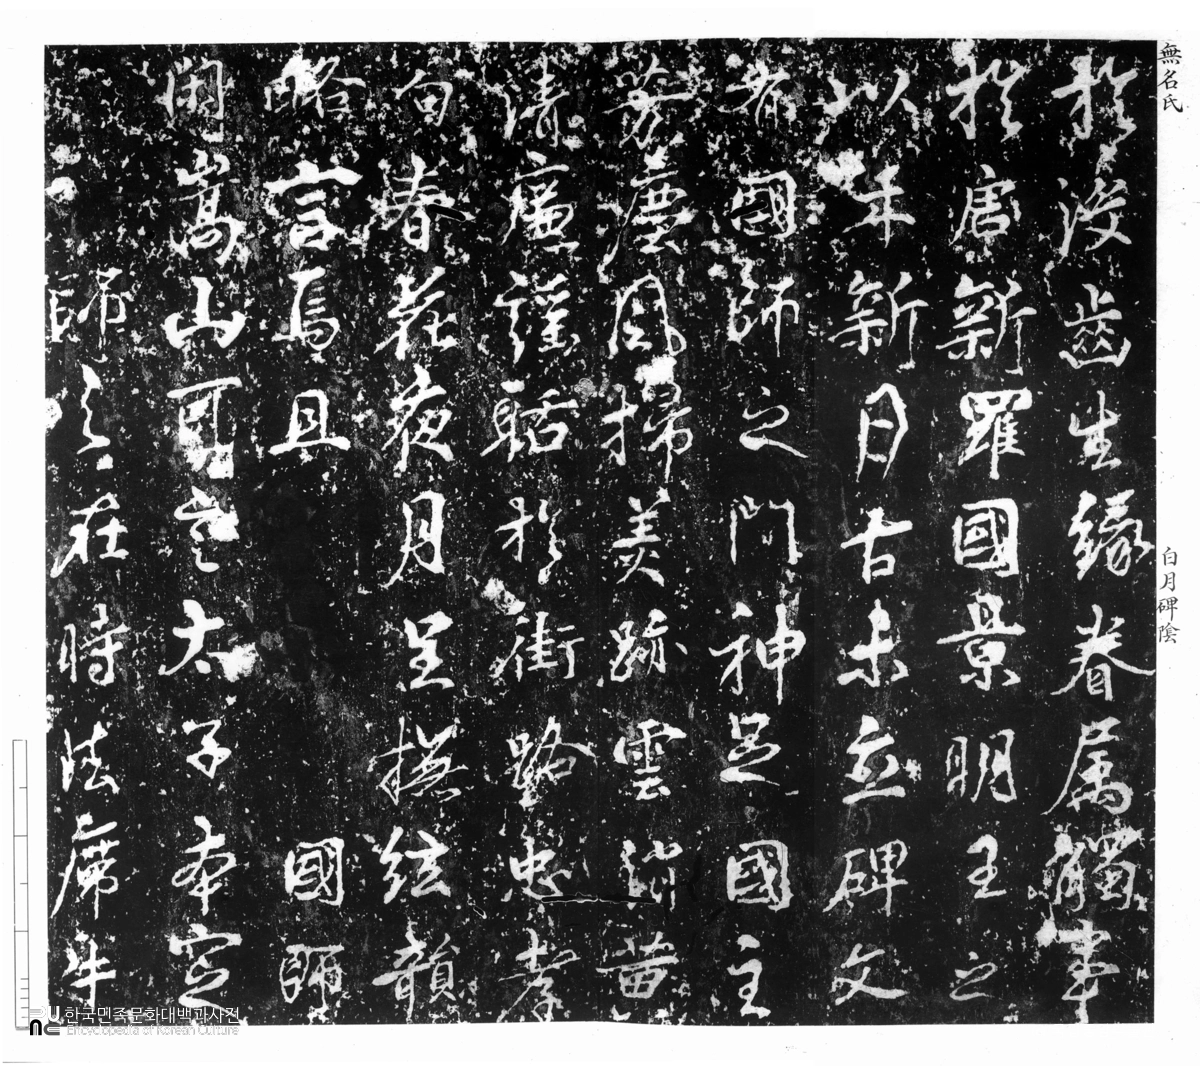 無名氏
白月碑陰
於沒齒生緣眷屬觸事
於唐新羅國景明王之
以年新月古未立碑文
者國師之門神足國主
芳塵風掃美跡雲銷
清廉謹聒於街路忠孝
春花夜月呈撫絃韻
略言焉且 國師
嵩山可 太子本定
歸 在時法席
한국민족문화대백과사전
Encyclopedia of Korean Culture